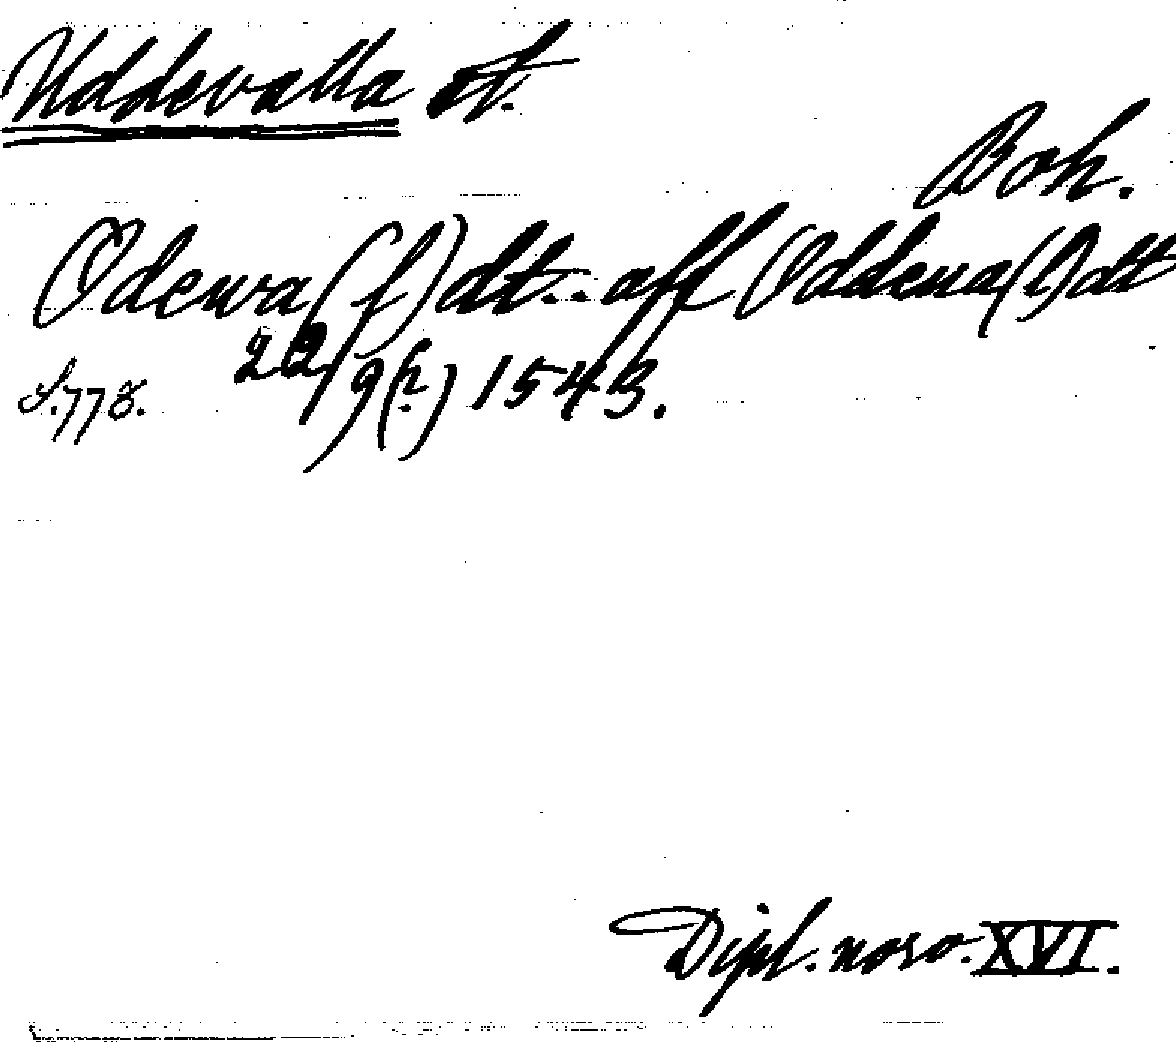 Uddevalla st.
Boh.
Odewa(l)dt.. aff Oddeua(l)dt
S. 778. 22/9 (?) 1543.
Dipl. norv. XVI.